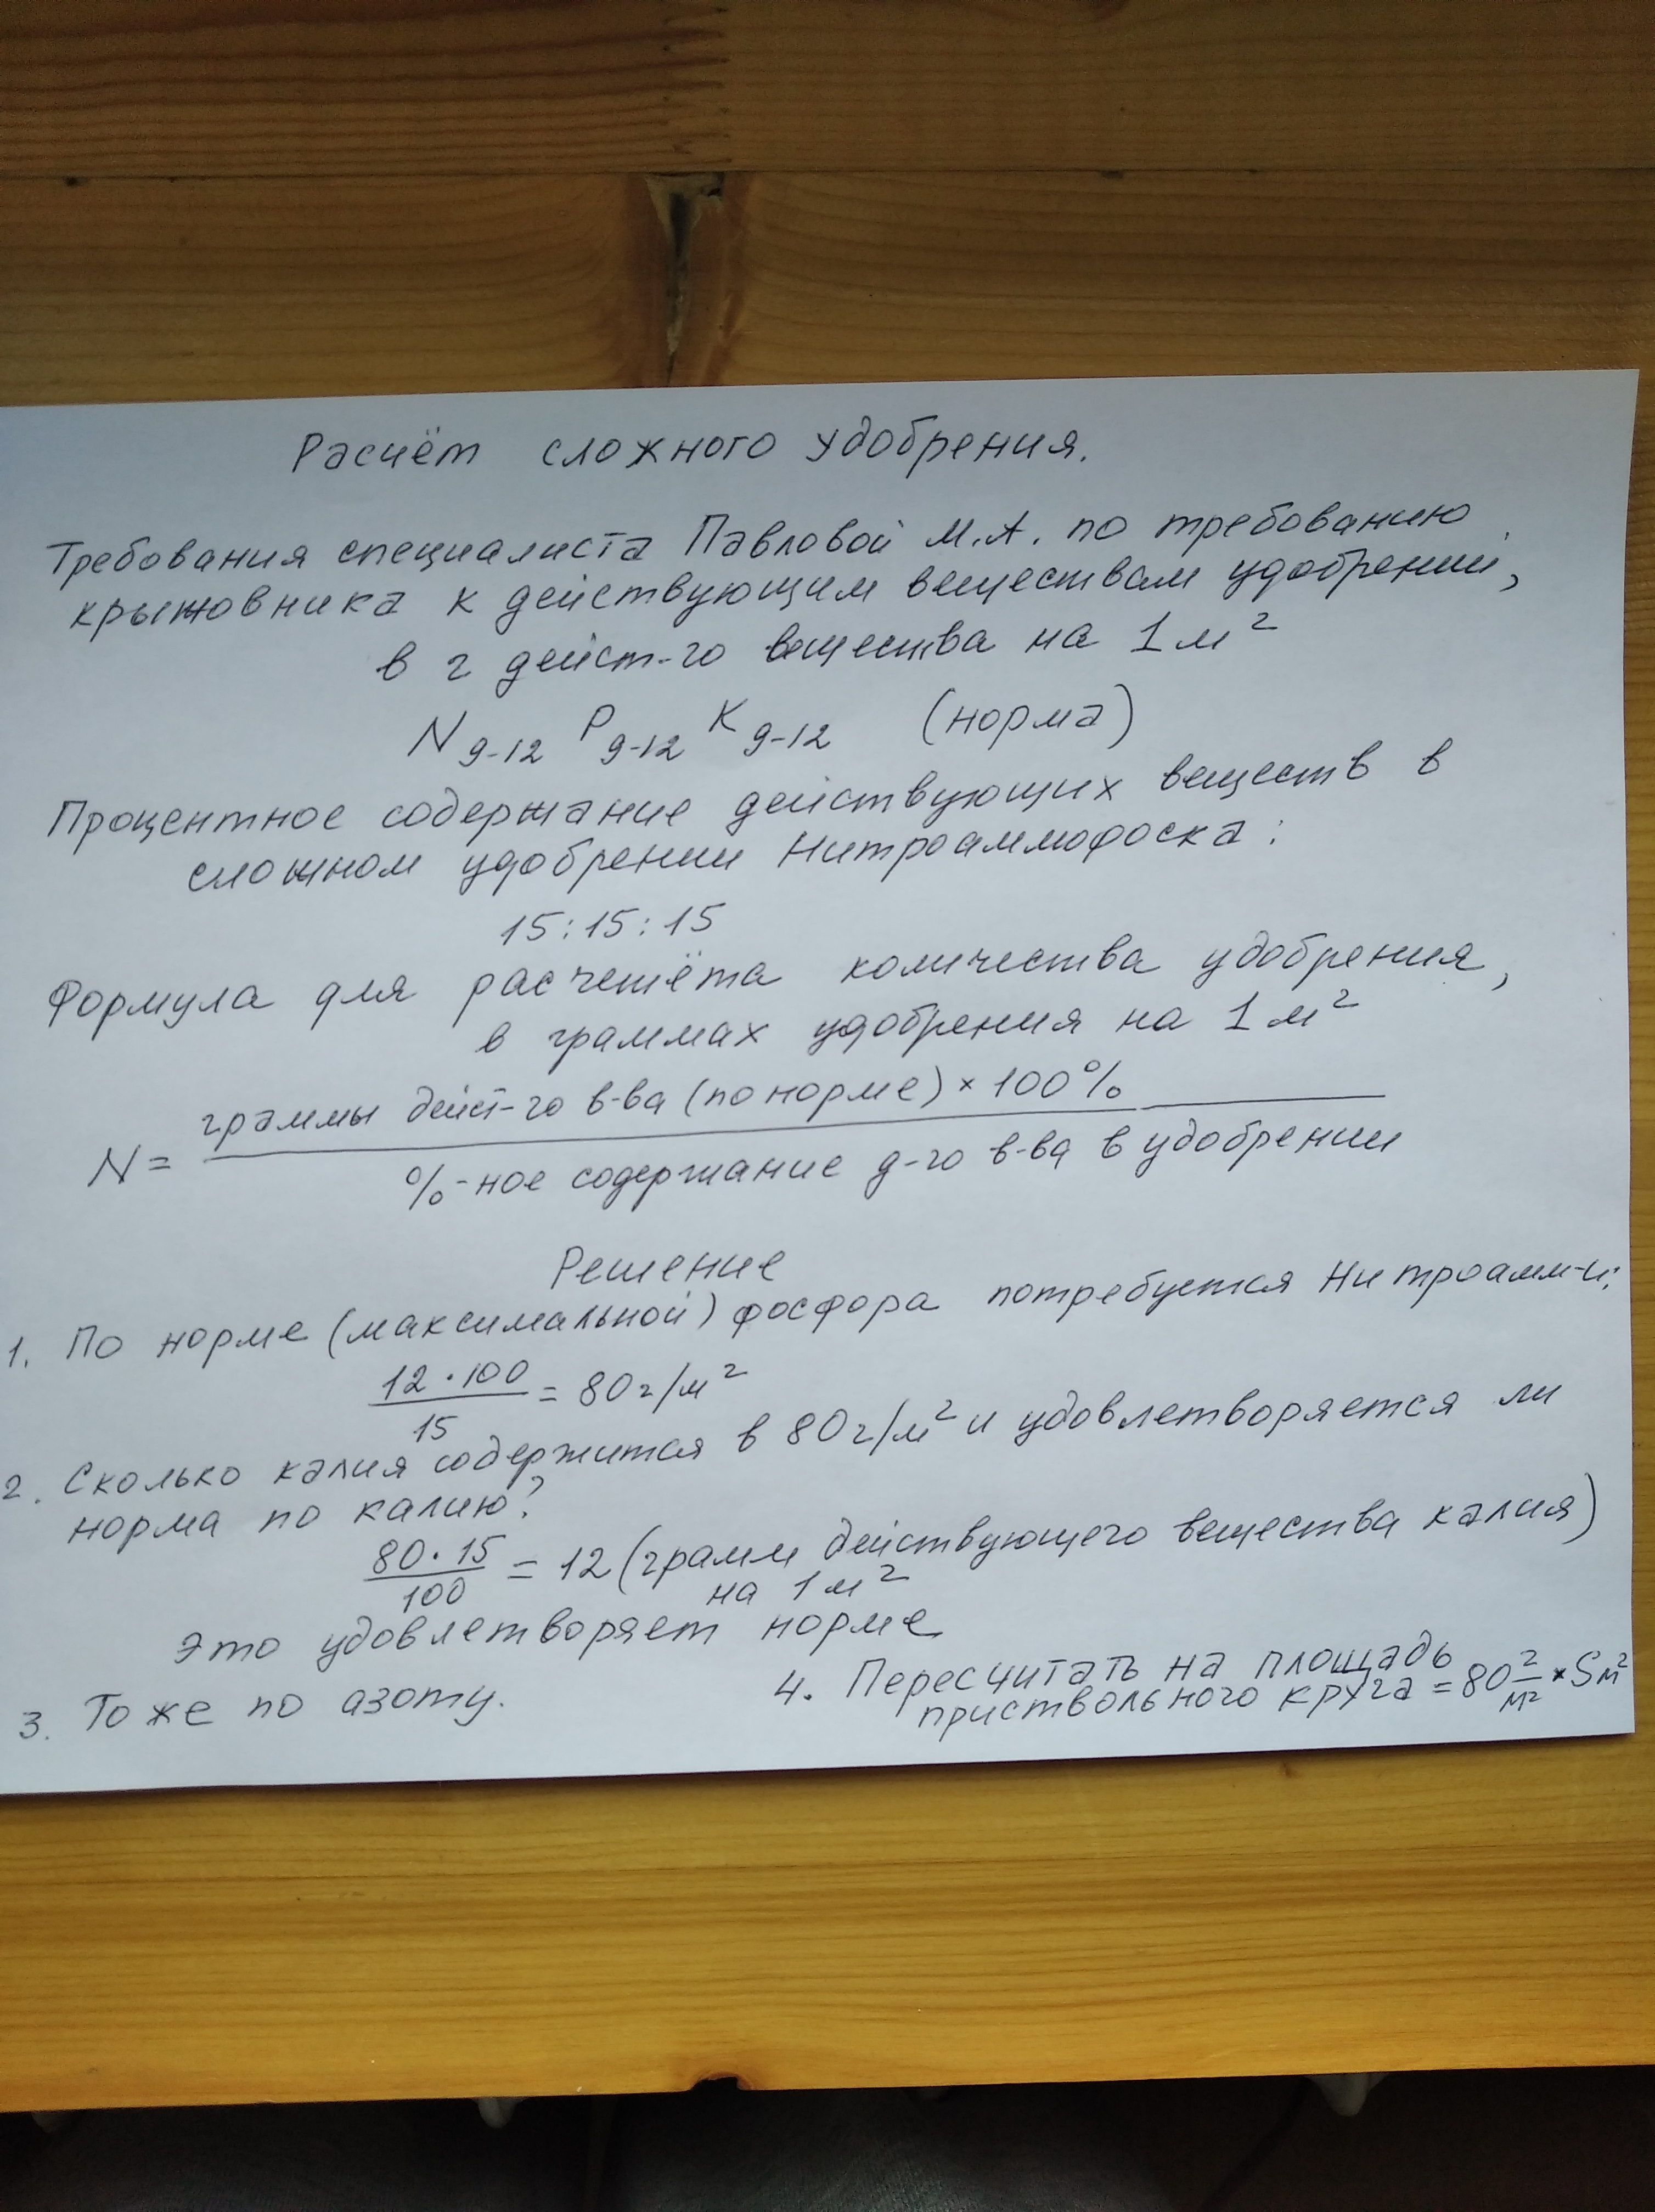 Расчёт сложного удобрения.
Требования специалиста Павловой М.А. по требованию
крыжовника к действующим веществам удобрений,
в г дейст-го вещества на 1 м²
N 9-12 P 9-12 K 9-12 (норма)
Процентное содержание действующих веществ в
сложном удобрении Нитроаммофоска:
15:15:15
Формула для расчета количества удобрения,
в граммах удобрения на 1 м²
N = граммы дейст-го в-ва (по норме) × 100%
%-ное содержание д-го в-ва в удобрении
Решение
1. По норме (максимальной) фосфора потребуется Нитроамм-и:
12 · 100 / 15 = 80 г/м²
2. Сколько калия содержится в 80 г/м² и удовлетворяется ли
норма по калию?
80 · 15 / 100 = 12 (грамм действующего вещества калия)
на 1 м²
Это удовлетворяет норме
3. То же по азоту.
4. Пересчитать на площадь
приствольного круга = 80 г/м² × S м²